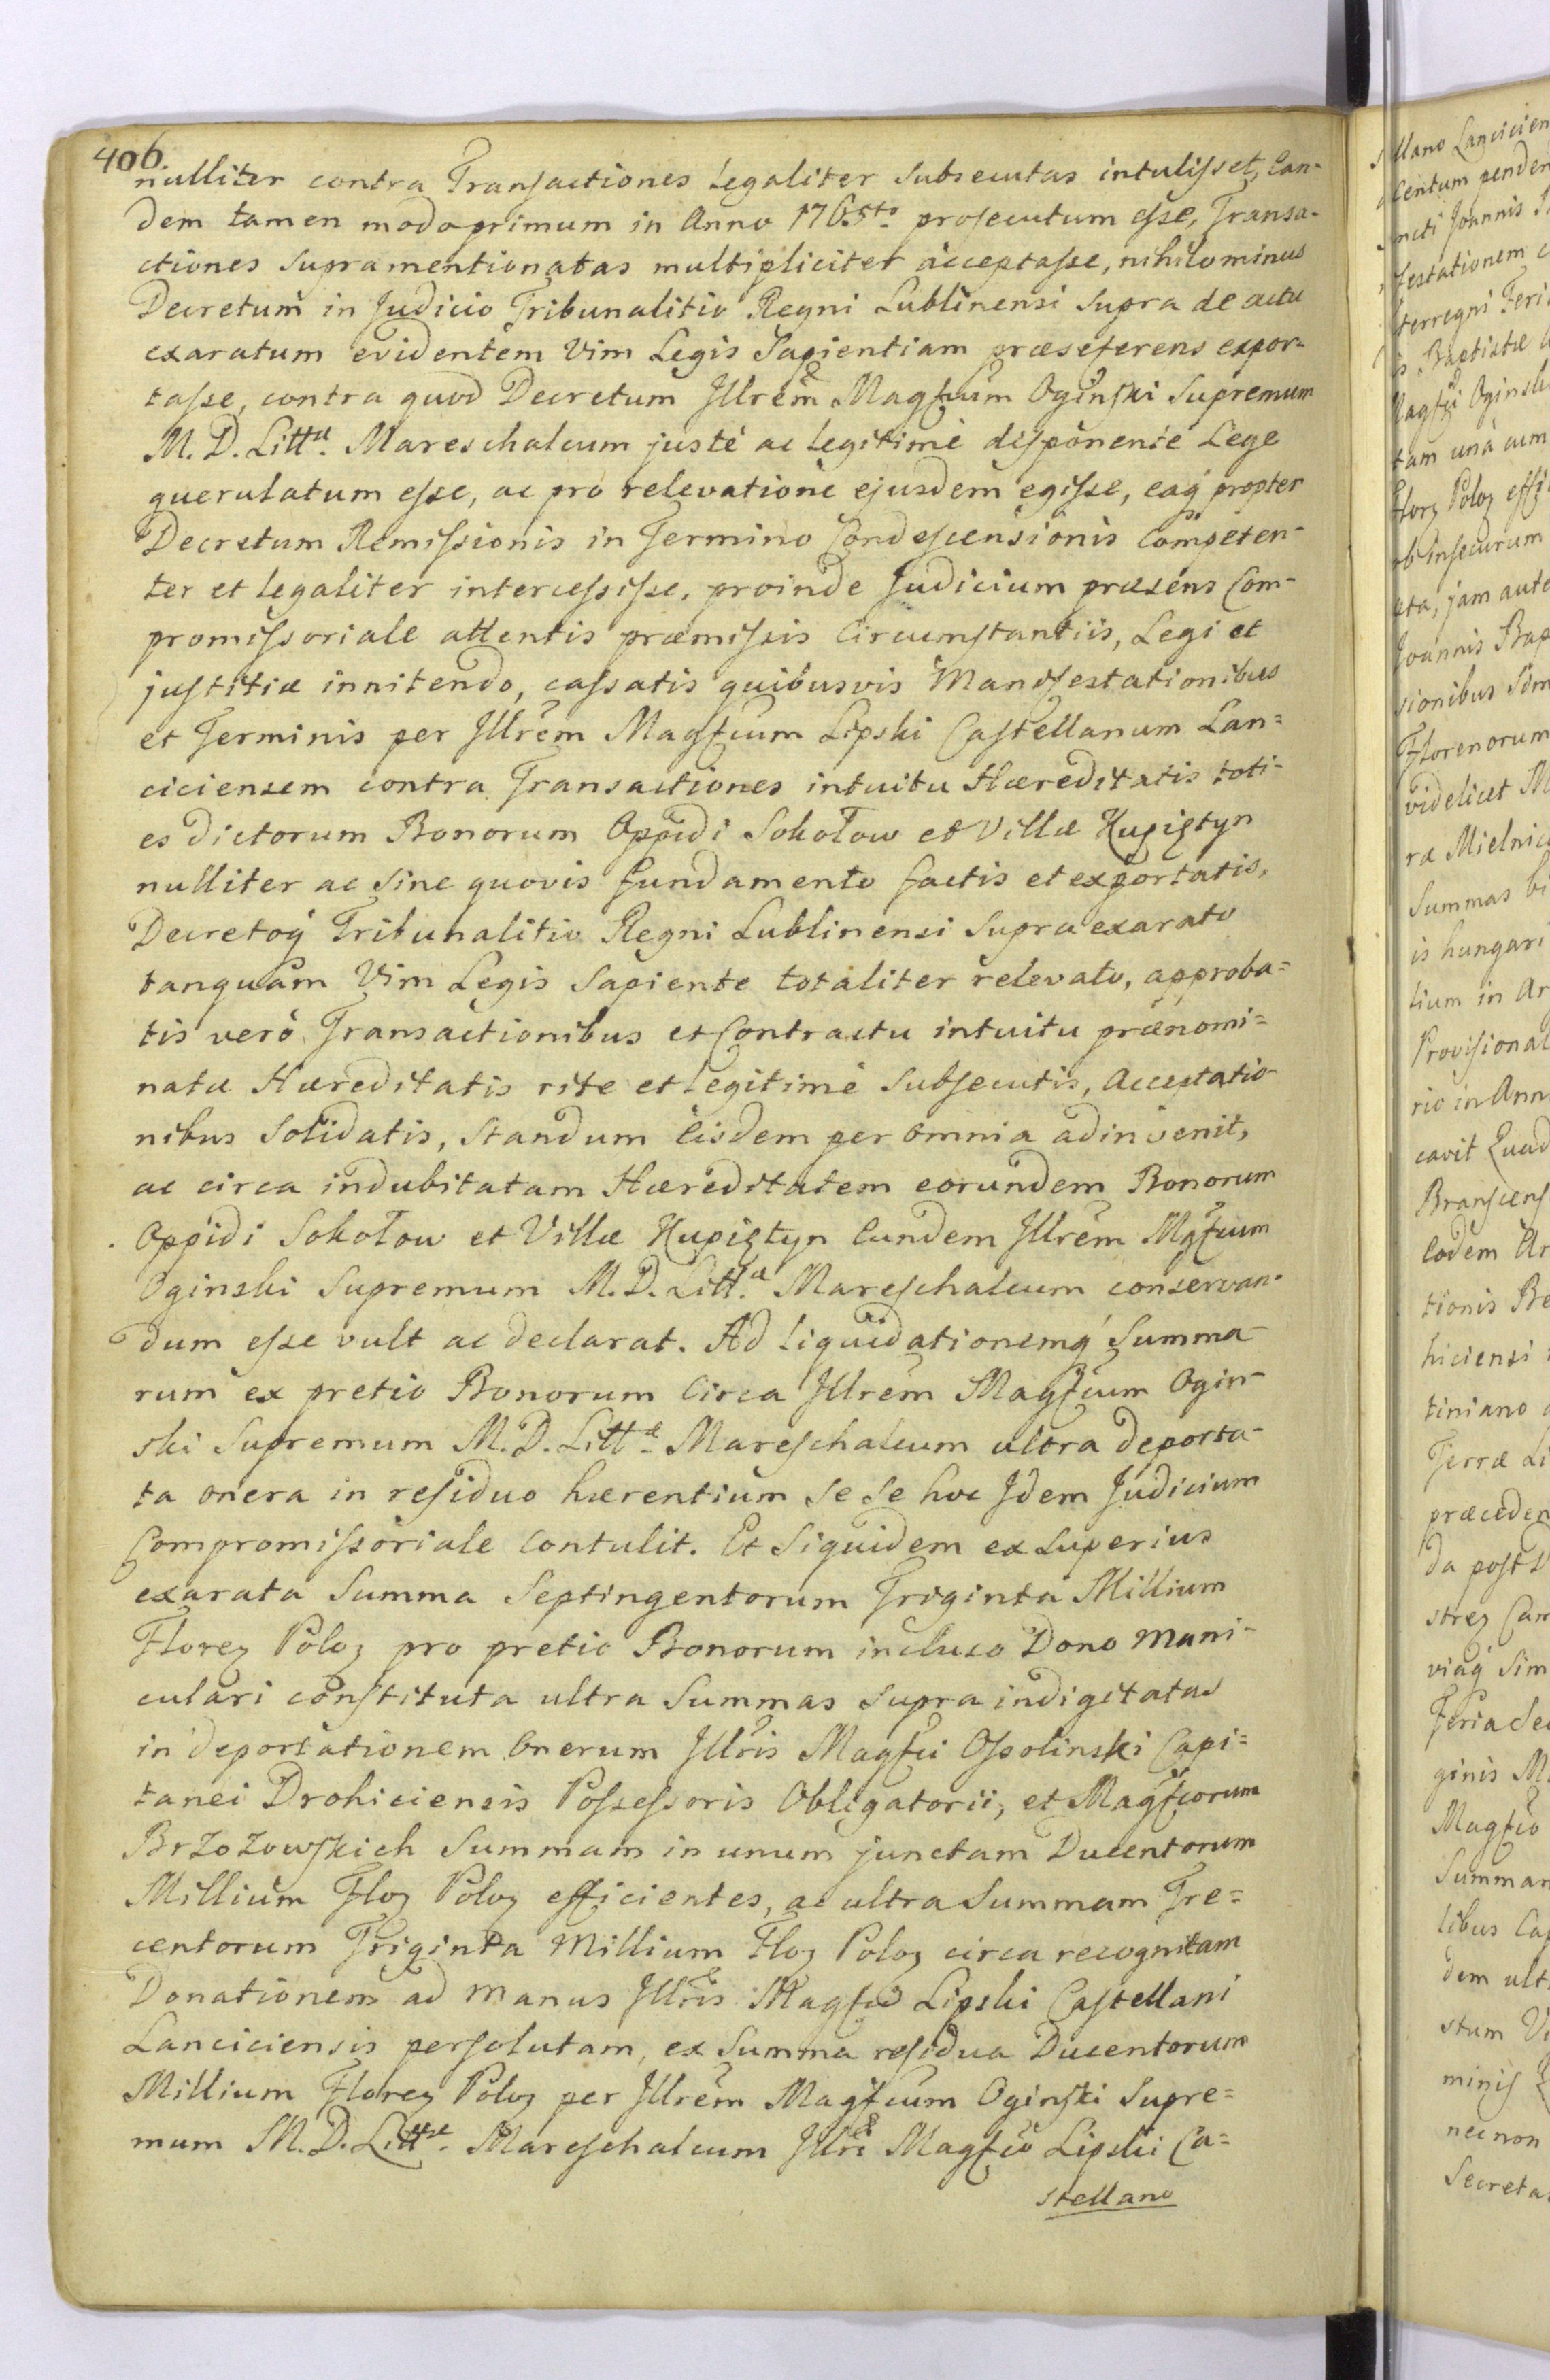 406.
nulliter contra Transactiones legaliter subsecutas intulisset, ean-
dem tamen modo primum in Anno 1765to prosecutum esse, Transa-
ctiones supramentionatas multipliciter acceptasse, nihilominus
Decretum in Judicio Tribunalitio Regni Lublinensi supra de actu
exaratum evidentem Vim Legis Sapientiam præseferens expor-
tasse, contra quod Decretum Illrem Magfcum Oginski Supremum
M. D. Littæ. Mareschalcum justè ac legitimè disponente Lege
querulatum esse, ac pro relevatione ejusdem egisse, eaq́ propter
Decretum Remissionis in Termino Condescensionis Competen-
ter et legaliter intercessisse, proinde Judicium præsens Com-
promissoriale attentis præmissis Circumstantiis, Legi et
justitiæ innitendo, cassatis quibusvis Manifestationibus
et Terminis per Illrem Magfcum Lipski Castellanum Lan=
ciciensem contra Transactiones intuitu Hæreditatis toti-
es dictorum Bonorum Oppidi Sokołow et Villæ Kupiętyn
nulliter ac sine quovis fundamento factis et exportatis,
Decretoq́ Tribunalitio Regni Lublinensi supra exarato
tanquam Vim Legis sapiente totaliter relevato, approba=
tis verò Transactionibus et Contractu intuitu prænomi=
natæ Hæreditatis rite et legitimè subsecutis, Acceptatio-
nibus solidatis, standum eisdem per omnia adinvenit,
ac circa indubitatam Hæreditatem eorundem Bonorum
Oppidi Sokołow et Villæ Kupiętyn eundem Illrem Mgfcum
Oginski Supremum M. D. Litt.æ Mareschalcum conservan-
dum esse vult ac declarat. Ad liquidationemq́ Summa-
rum ex pretio Bonorum Circa Illrem Magfcum Ogin-
ski Supremum M. D. Littæ. Mareschalcum ultra deporta-
ta onera in residuo hærentium se se hoc Idem Judicium
Compromissoriale Contulit. Et siquidem ex superius
exarata Summa Septingentorum Triginta Millium
Floreꝝ Poloꝝ pro pretio Bonorum incluso Dono Mani-
culari constituta ultra Summas supra indigitatas
in deportationem Onerum Illris Magfci Ossolinski Capi=
tanei Drohiciensis Possessoris Obligatorii, et Magfcorum
Brzozowskich Summam in unum junctam Ducentorum
Millium Floꝝ Poloꝝ efficientes, ac ultra Summam Tre=
centorum Triginta Millium Floꝝ Poloꝝ circa recognitam
Donationem ad manus Illris Magfci Lipski Castellani
Lanciciensis persolutam, ex Summa residua Ducentorum
Millium Floreꝝ Poloꝝ per Illrem Magfcum Oginski Supre=
mum M. D. Littæ. Mareschalcum Illri Magfco Lipski Ca=
stellano